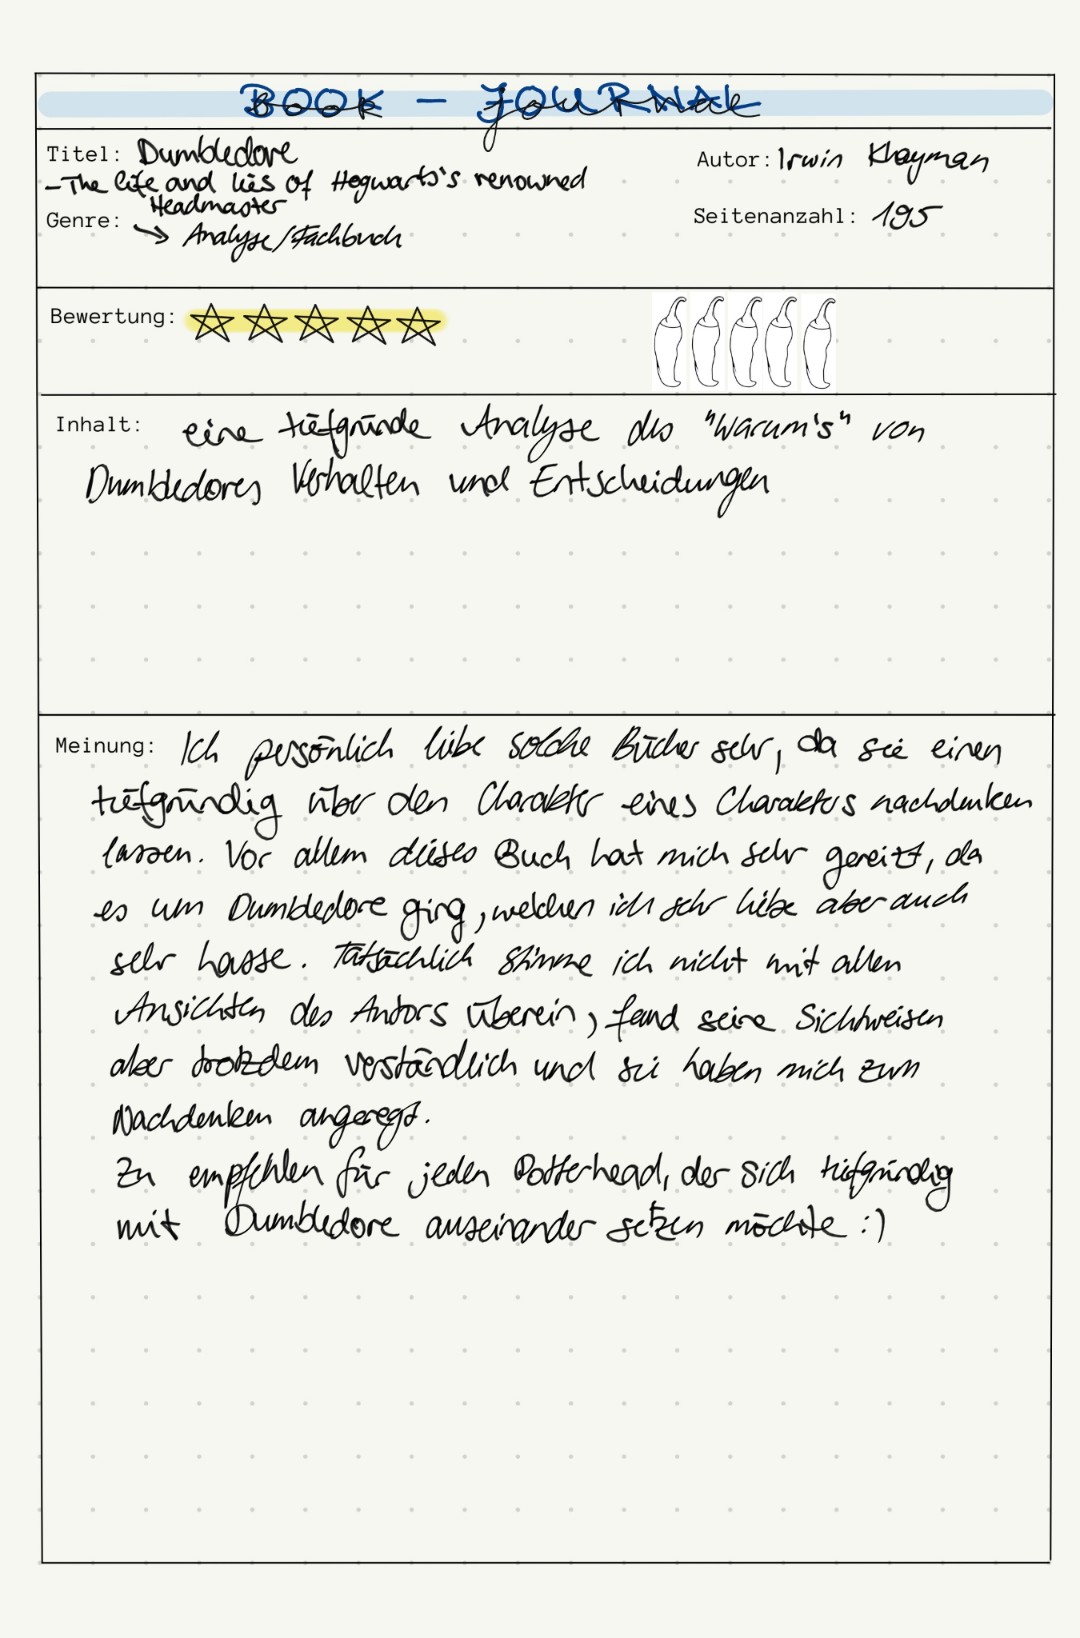 BOOK - JOURNAL
Titel: Dumbledore
- The life and lies of Hogwarts's renowned
Headmaster
Autor: Irwin Khayman
Genre: → Analyse/Fachbuch
Seitenanzahl: 195
Bewertung:
Inhalt: eine tiefgründe Analyse des "Warum's" von
Dumbledores Verhalten und Entscheidungen
Meinung: Ich persönlich liebe solche Bücher sehr, da sie einen
tiefgründig über den Charakter eines Charakters nachdenken
lassen. Vor allem dieses Buch hat mich sehr gereitzt, da
es um Dumbledore ging, welchen ich sehr liebe aber auch
sehr hasse. Tatsächlich stimme ich nicht mit allen
Ansichten des Autors überein, fand seine Sichtweisen
aber trotzdem verständlich und sie haben mich zum
Nachdenken angeregt.
Zu empfehlen für jeden Potterhead, der sich tiefgründig
mit Dumbledore auseinander setzen möchte :)